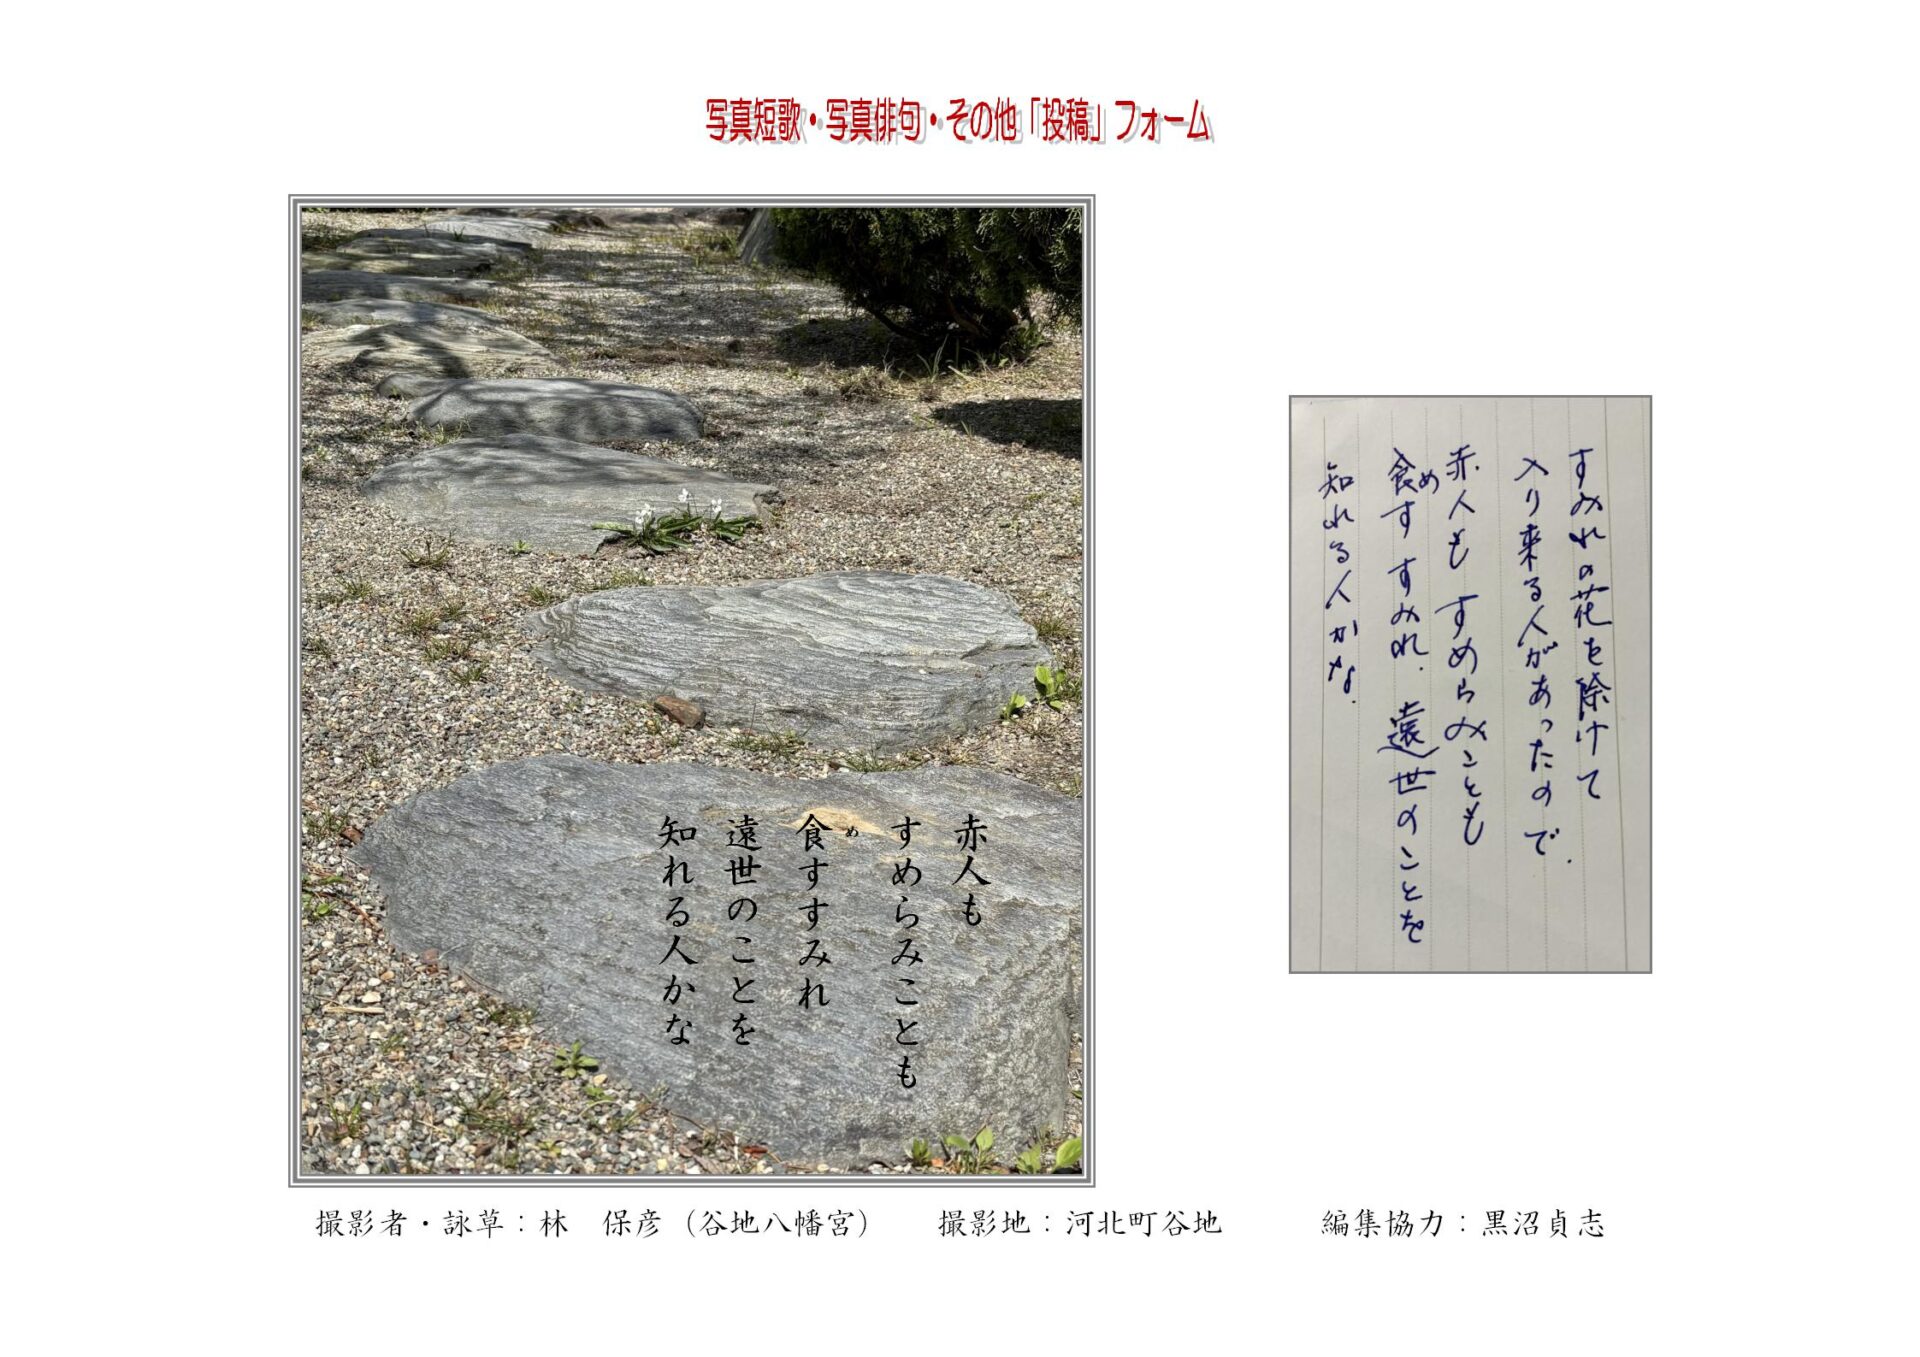 写真短歌・写真俳句・その他「投稿」フォーム
赤人も
すめらみことも
食すすみれ
め
遠世のことを
知れる人かな
すみれの花を除けて
入り来る人があったので.
赤人も すめらみことも
め
食す すみれ. 遠世のことを
知れる人かな.
撮影者・詠草：林　保彦（谷地八幡宮）　撮影地：河北町谷地　編集協力：黒沼貞志